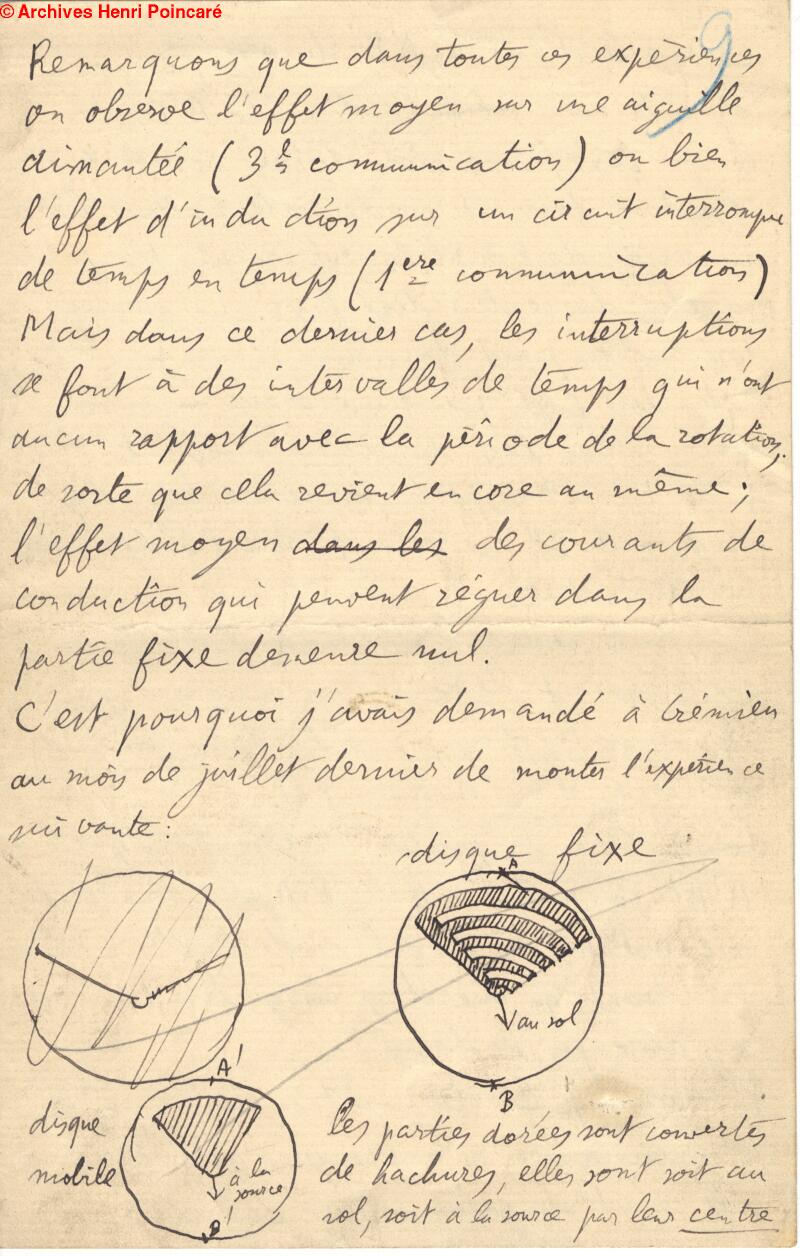 © Archives Henri Poincaré
9
Remarquons que dans toutes ces expériences
on observe l'effet moyen sur une aiguille
aimantée (3e communication) ou bien
l'effet d'induction sur un circuit interrompu
de temps en temps (1ere communication)
Mais dans ce dernier cas, les interruptions
se font à des intervalles de temps qui n'ont
aucun rapport avec la période de la rotation;
de sorte que cela revient encore au même;
l'effet moyen dans les des courants de
conduction qui peuvent régner dans la
partie fixe demeure nul.
C'est pourquoi j'avais demandé à Crémieu
au mois de juillet dernier de monter l'expérience
suivante:
disque fixe
A
au sol
B
A'
disque
mobile
à la
source
B'
Les parties dorées sont couvertes
de hachures, elles sont soit au
sol, soit à la source par leur centre